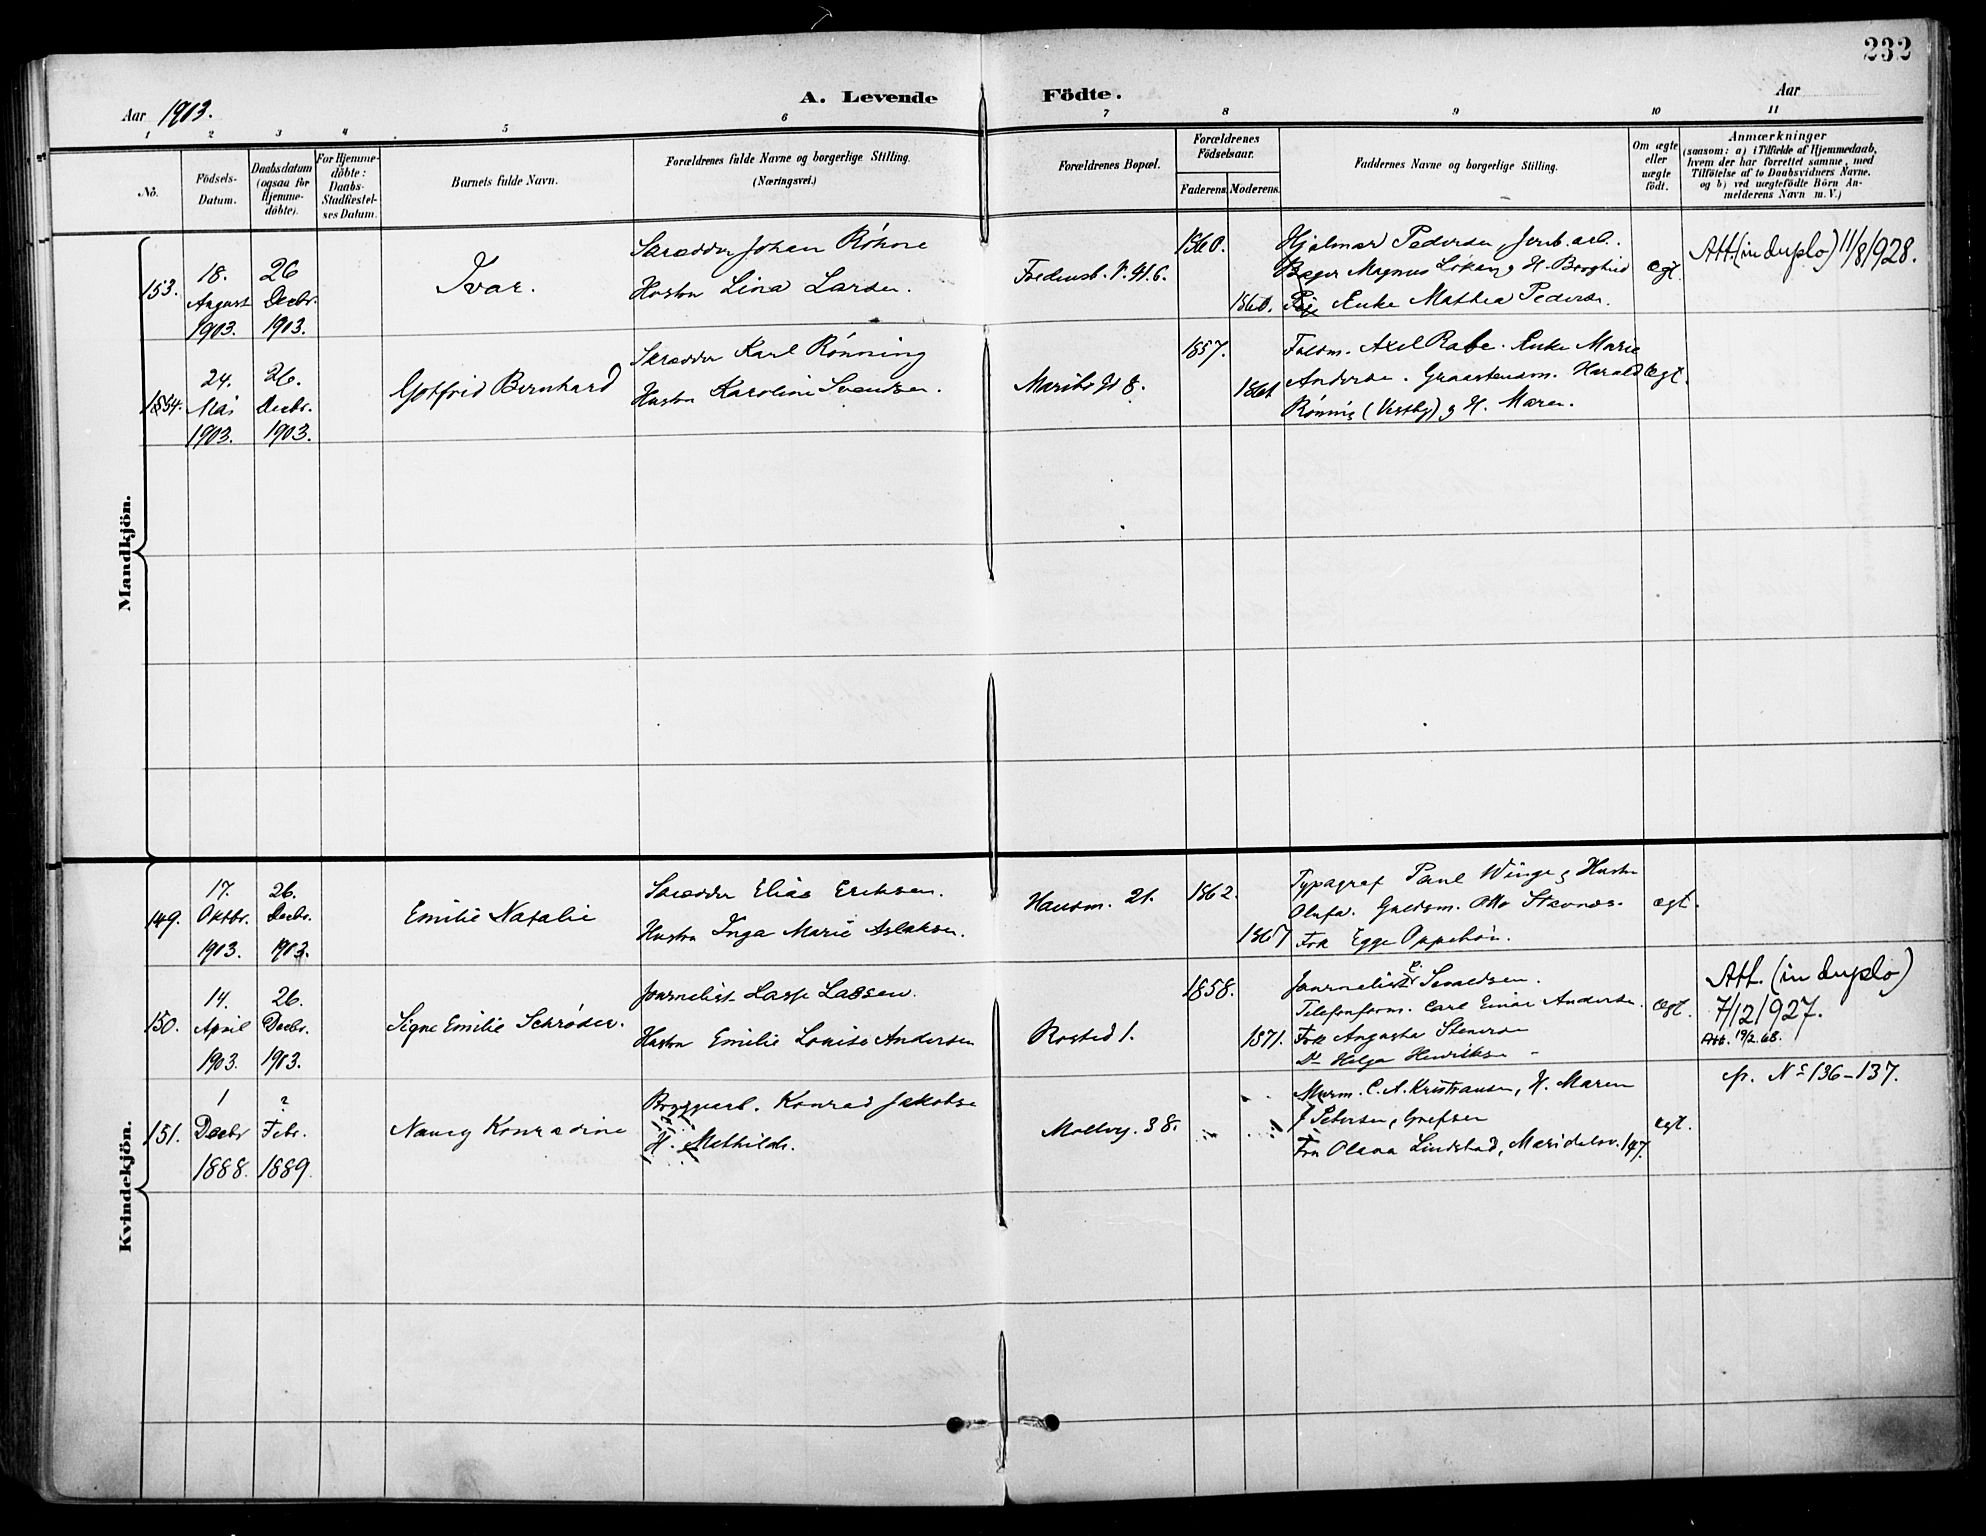 232
Aar 1903.
A. Levende Födte.
Aar
1 2 3 4 5 6 7 8 9 10 11
No.
Födsels-Datum.
Daabsdatum (ogsaa for Hjemme-döbte).
For Hjemme-döbte: Daabs-Stadfæstel-ses Datum.
Barnets fulde Navn.
Forældrenes fulde Navne og borgerlige Stilling.
(Næringsvei.)
Forældrenes Bopæl.
Forældrenes Födselsaar.
Faderens. Moderens.
Faddernes Navne og borgerlige Stilling.
Om ægte eller uægte födt.
Anmærkninger
(saasom: a) i Tilfælde af Hjemmedaab,
hvem der har forrettet samme, med
Tilföielse af to Daabsvidners Navne.
og b) ved uægtefödte Börn An-
melderens Navn m. V.)
Mandkjön.
153.
18. August 1903.
26 Decbr. 1903.
Ivar.
Skrædder Johan Röhne
Hustru Lina Larsen.
Fredensb. V. 41 6.
1860.
1860.
Hjalmar Pedersen, Jernb. arb.
Bager Magnus Löken g H. Borghild
Enke Mathea Pedersen.
ægt.
Att. (in duplo) 11/8 1928.
154.
24. Mai 1903.
26. Decbr. 1903.
Gotfrid Bernhard
Skrædder Karl Rönning
Hustru Karoline Svendsen.
Maribo Gd 8.
1857.
1861
Axel Rabe. Enke Marie
Andersen. Harald
Rönning (Vestby) g H. Maren.
ægt.
Kvindekjön.
149.
17. Oktbr. 1903.
26. Decbr. 1903.
Emilie Natalie
Skrædder Elias Eriksen.
Hustru Inga Marie Aslaksen.
Hausm. 21.
1862.
1867
Typograf Paul Winge g Hustru
Olufa. Guldsm. Otto Stavnæs.
Frk Egge
ægt.
150.
14. April 1903.
26. Decbr. 1903.
Signe Emilie Schrøder.
Journalist Lasse Lassen.
Hustru Emilie Louise Andersen
Rosted 1.
1858.
1871.
Journalist
Telefonform. Carl Einar Andersen.
Frk Augusta Stenersen
Do Helga Henriksen
ægt.
Att. (in duplo)
7/12 1927.
Att. 19/2 68.
151.
1 Decbr 1888.
? Febr. 1889.
Nancy Konradine
Konrad Jakobsen
H. Mathilde.
Mollvg. 38.
Murm. C. A. Kristiansen, H. Maren
J Petersen, Grefsen
Fru Olava Lindstad, Maridalsv. 147.
ægt.
cfr. No 136–137.